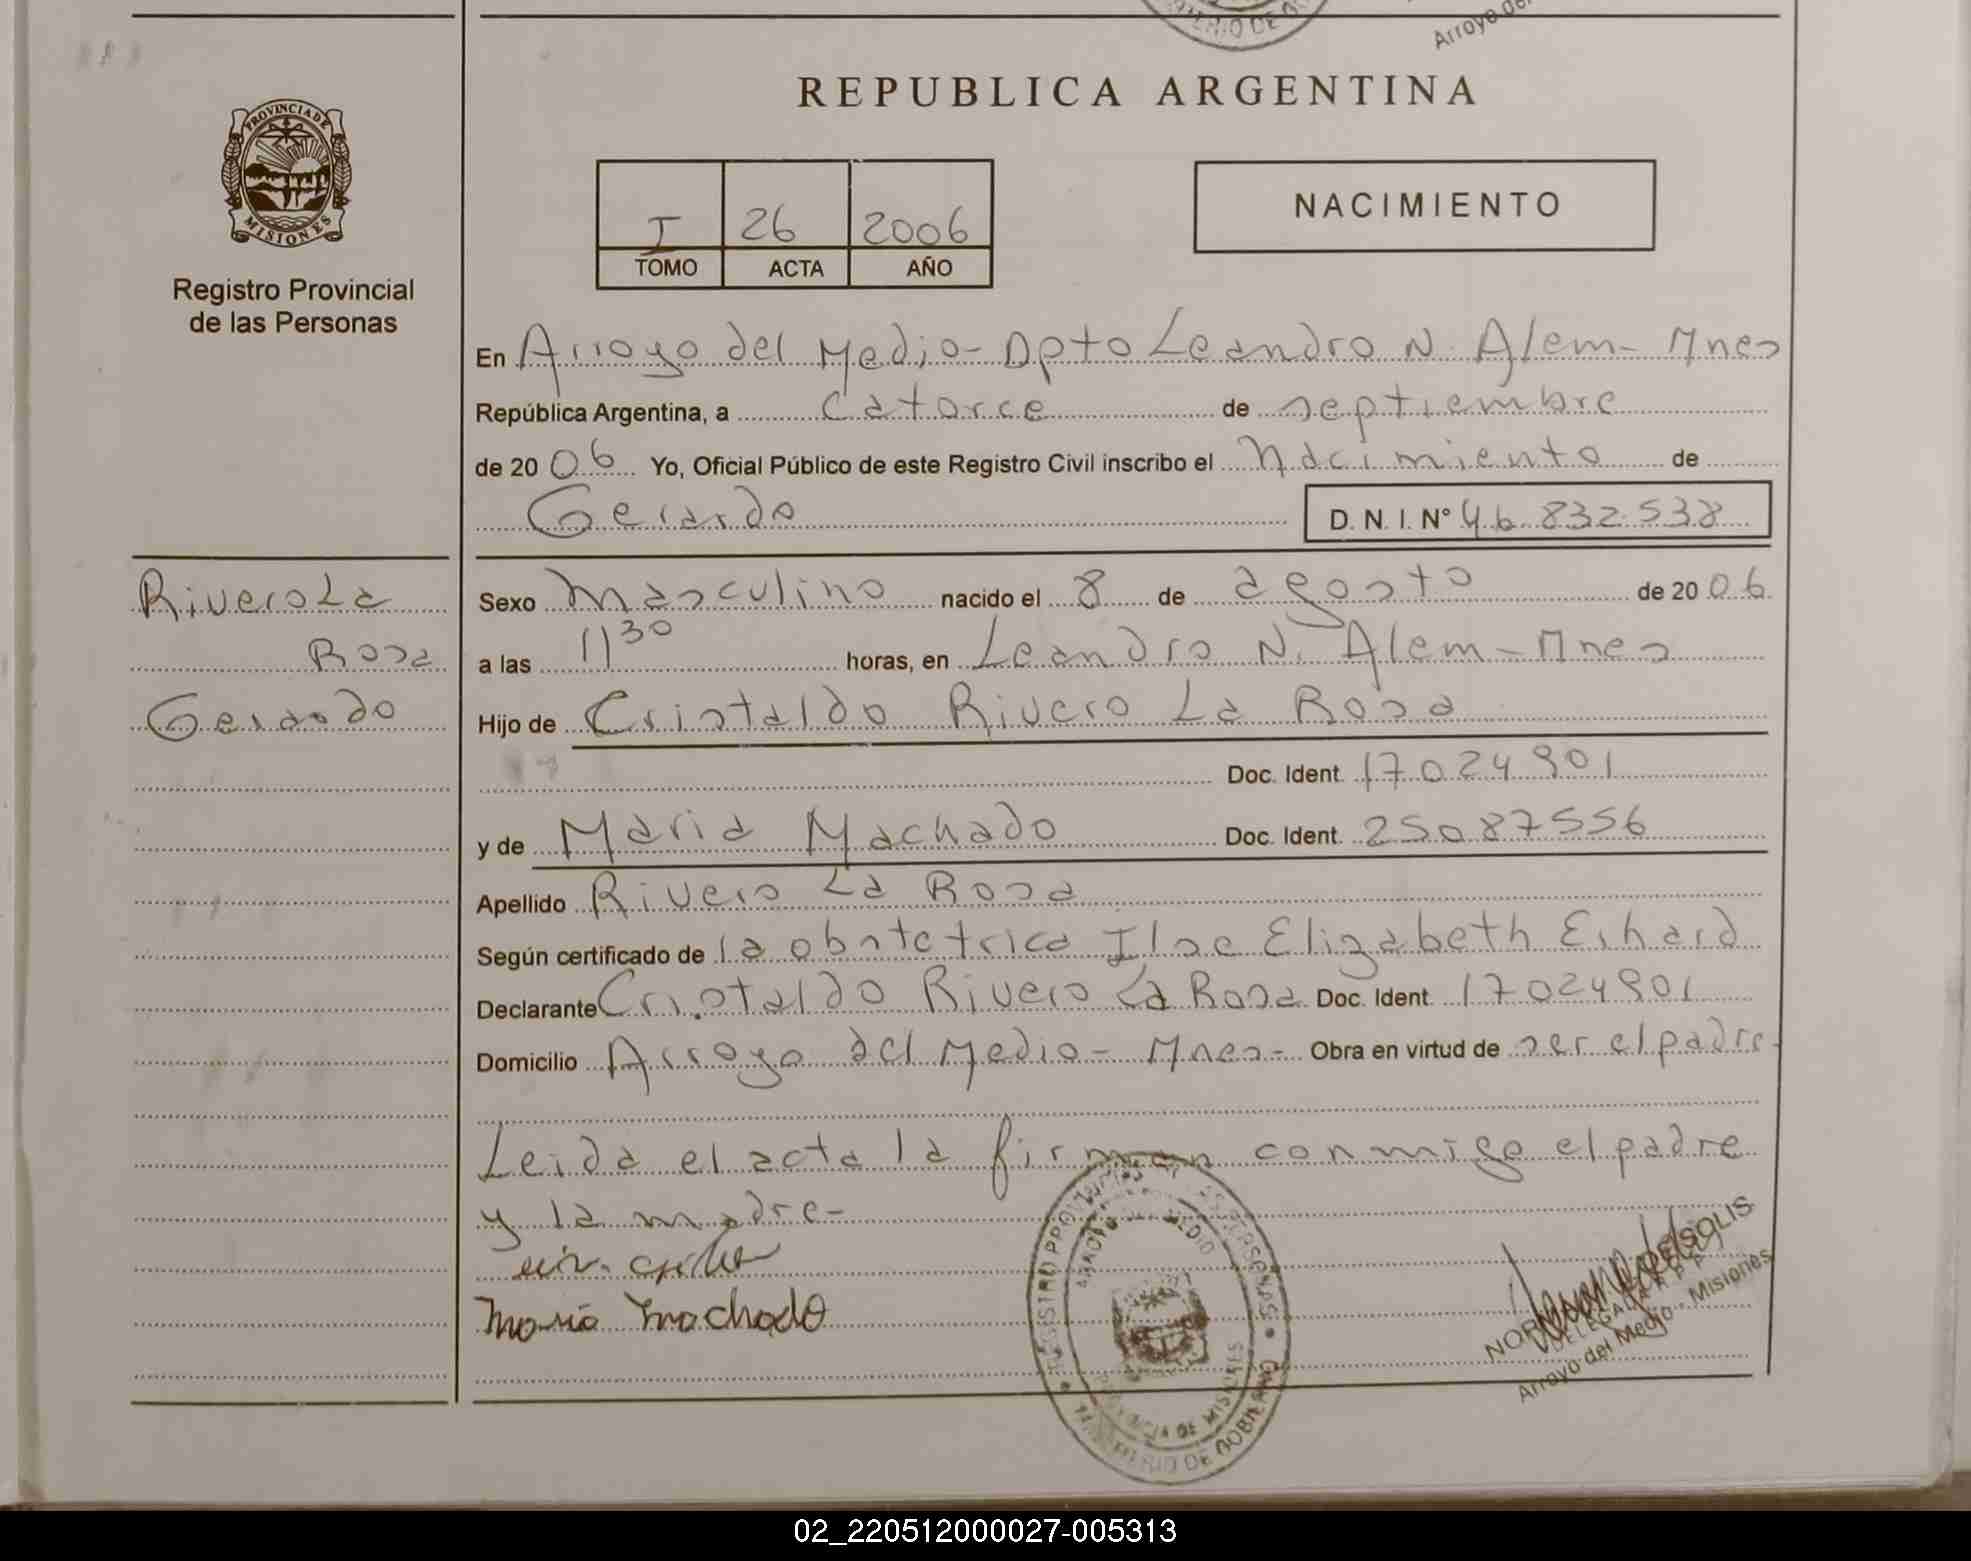 MINISTERIO DE GO
Arroyo del
REPUBLICA ARGENTINA
PROVINCIA DE
MISIONES
Registro Provincial
de las Personas
I 26 2006
TOMO ACTA AÑO
NACIMIENTO
En Arroyo del Medio - Dpto Leandro N. Alem - Mnes
República Argentina, a catorce de septiembre
de 2006 Yo, Oficial Público de este Registro Civil inscribo el nacimiento de
Gerardo D. N. I. N° 46.832.538
Rivero La
Rosa
Gerardo
Sexo Masculino nacido el 8 de agosto de 2006
a las 11 30 horas, en Leandro N. Alem - Mnes
Hijo de Cristaldo Rivero La Rosa
Doc. Ident. 17024901
y de Maria Machado Doc. Ident. 25087556
Apellido Rivero La Rosa
Según certificado de la obstetrica Ilse Elizabeth Erhard
Declarante Cristaldo Rivero La Rosa Doc. Ident. 17024901
Domicilio Arroyo del Medio - Mnes - Obra en virtud de ser el padre -
Leida el acta la firman conmigo el padre
y la madre -
Maria Machado
REGISTRO PROVINCIAL DE LAS PERSONAS
ARROYO DEL MEDIO
PROVINCIA DE MISIONES
MINISTERIO DE GOBIERNO
DE SOLIS
DELEGADA R P P
Arroyo del Medio - Misiones
02_220512000027-005313